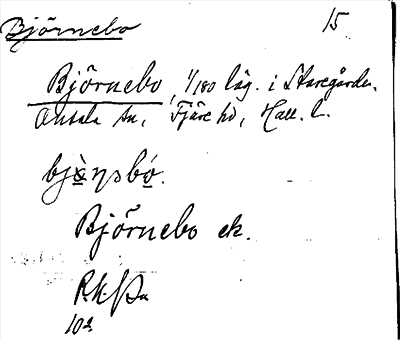 Björnebo 15
Björnebo, 1/180 läg. i Staregården,
Onsala sn, Fjäre hd, Hall. l.
Björnebo ek.
102